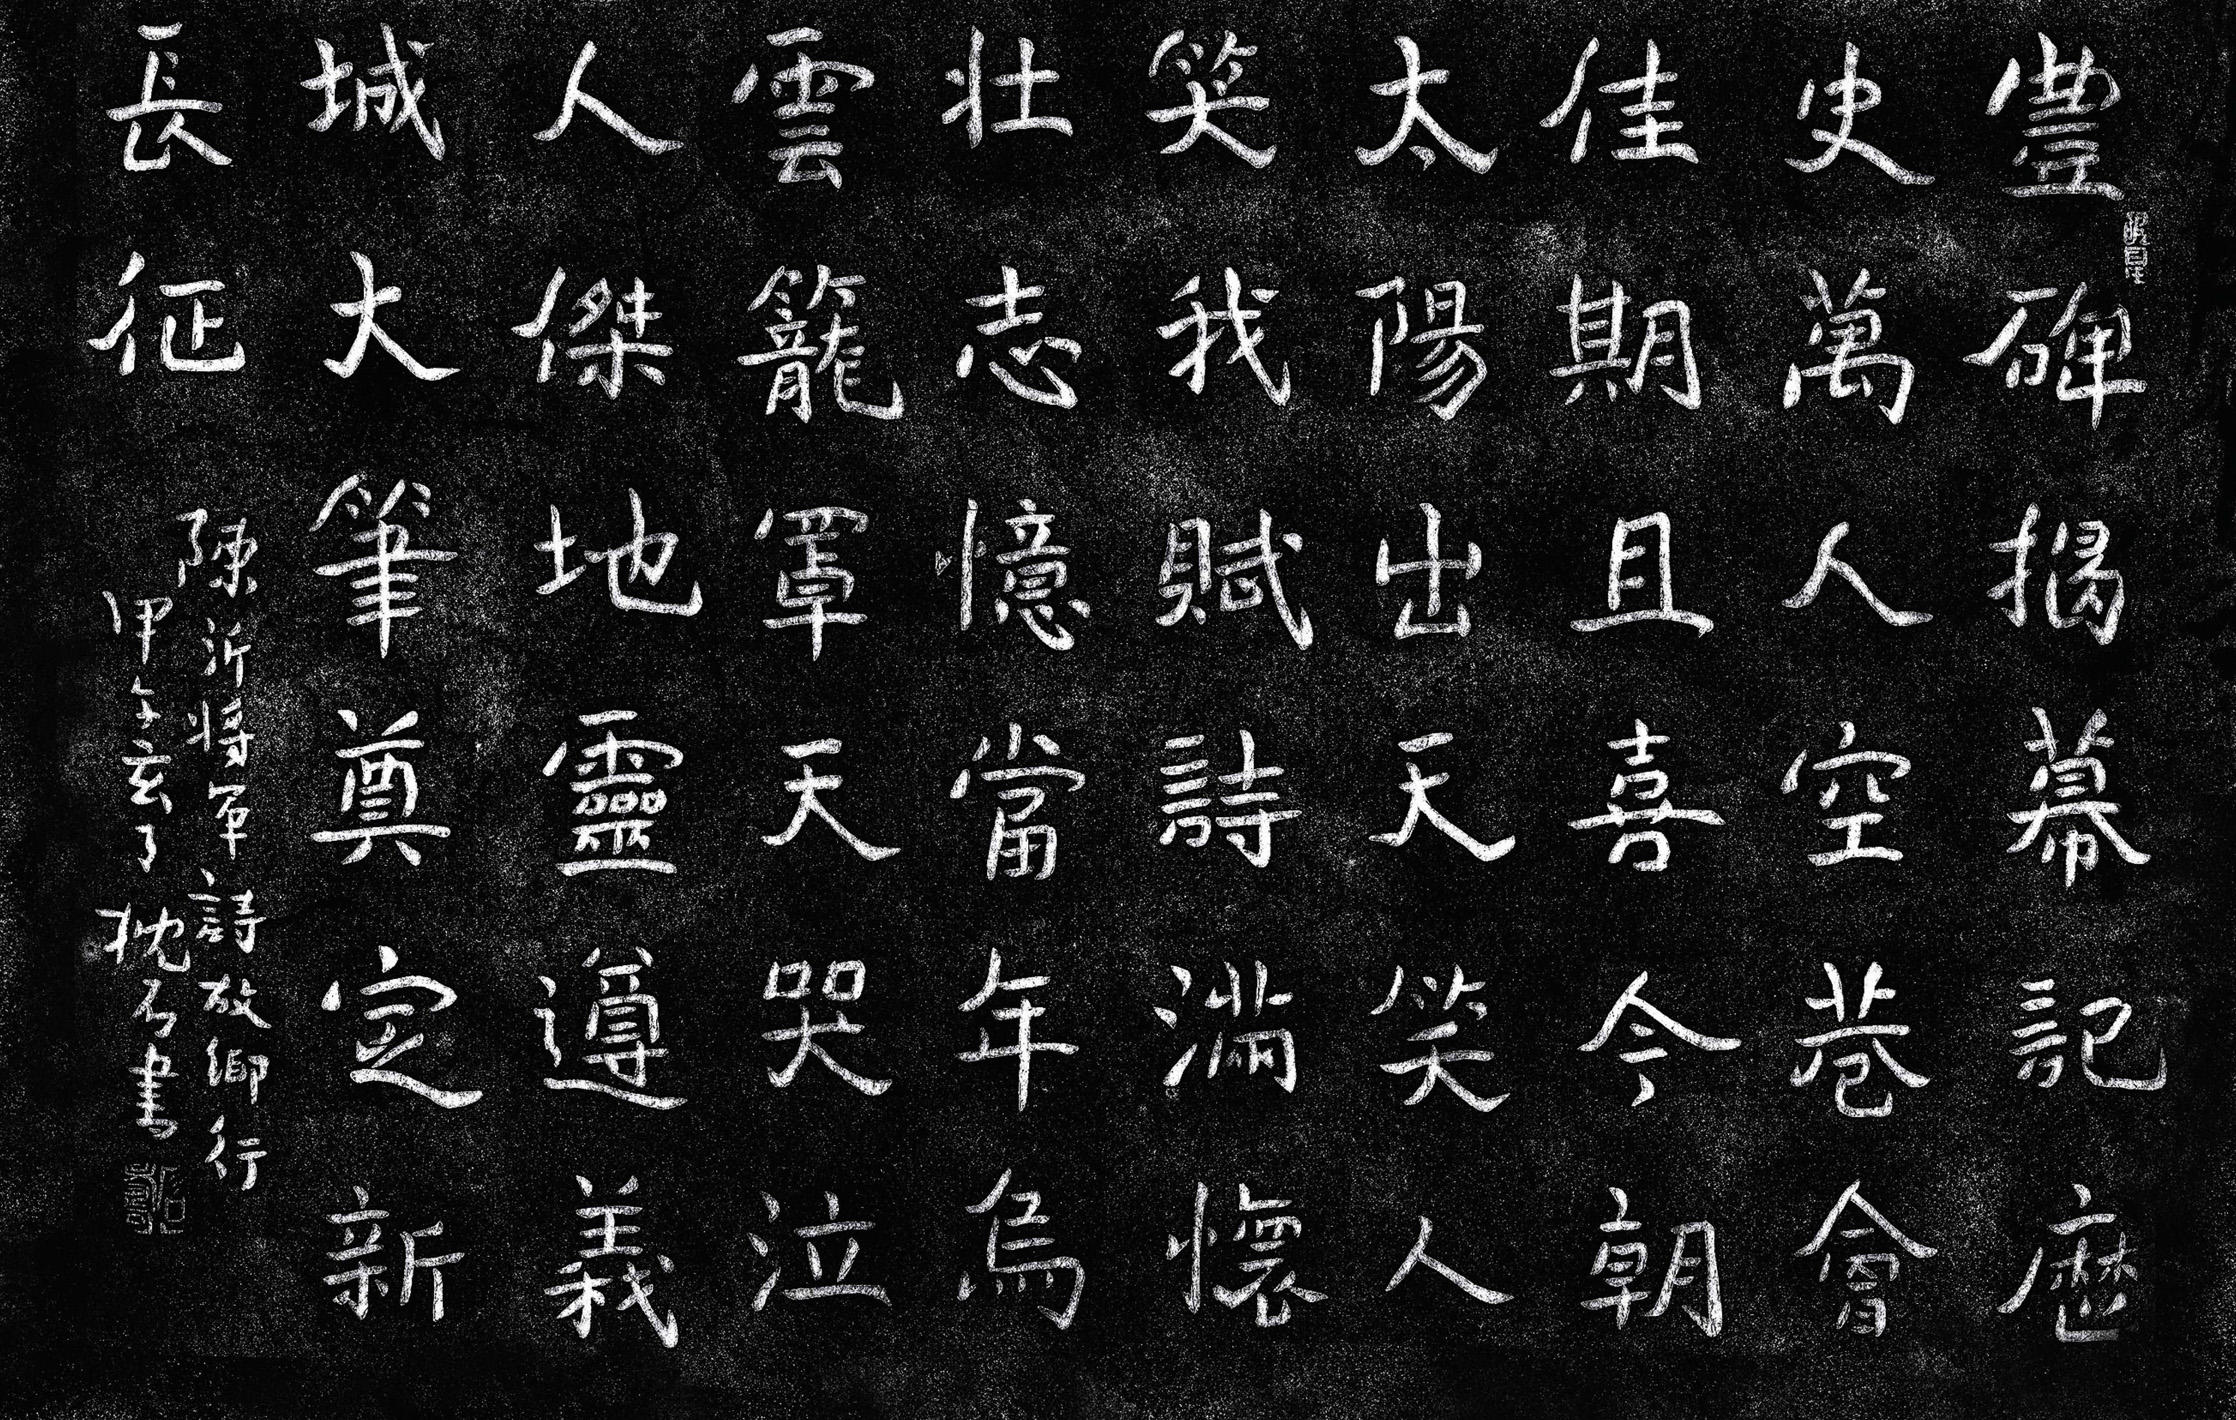 豐碑揭幕記歷
史萬人空巷會
佳期且喜今朝
太陽出天笑人
笑我賦詩滿懷
壯志憶當年烏
雲籠罩天哭泣
人傑地靈遵義
城大筆奠定新
長征
陳沂將軍詩放鄉行
甲午亥了枕石書